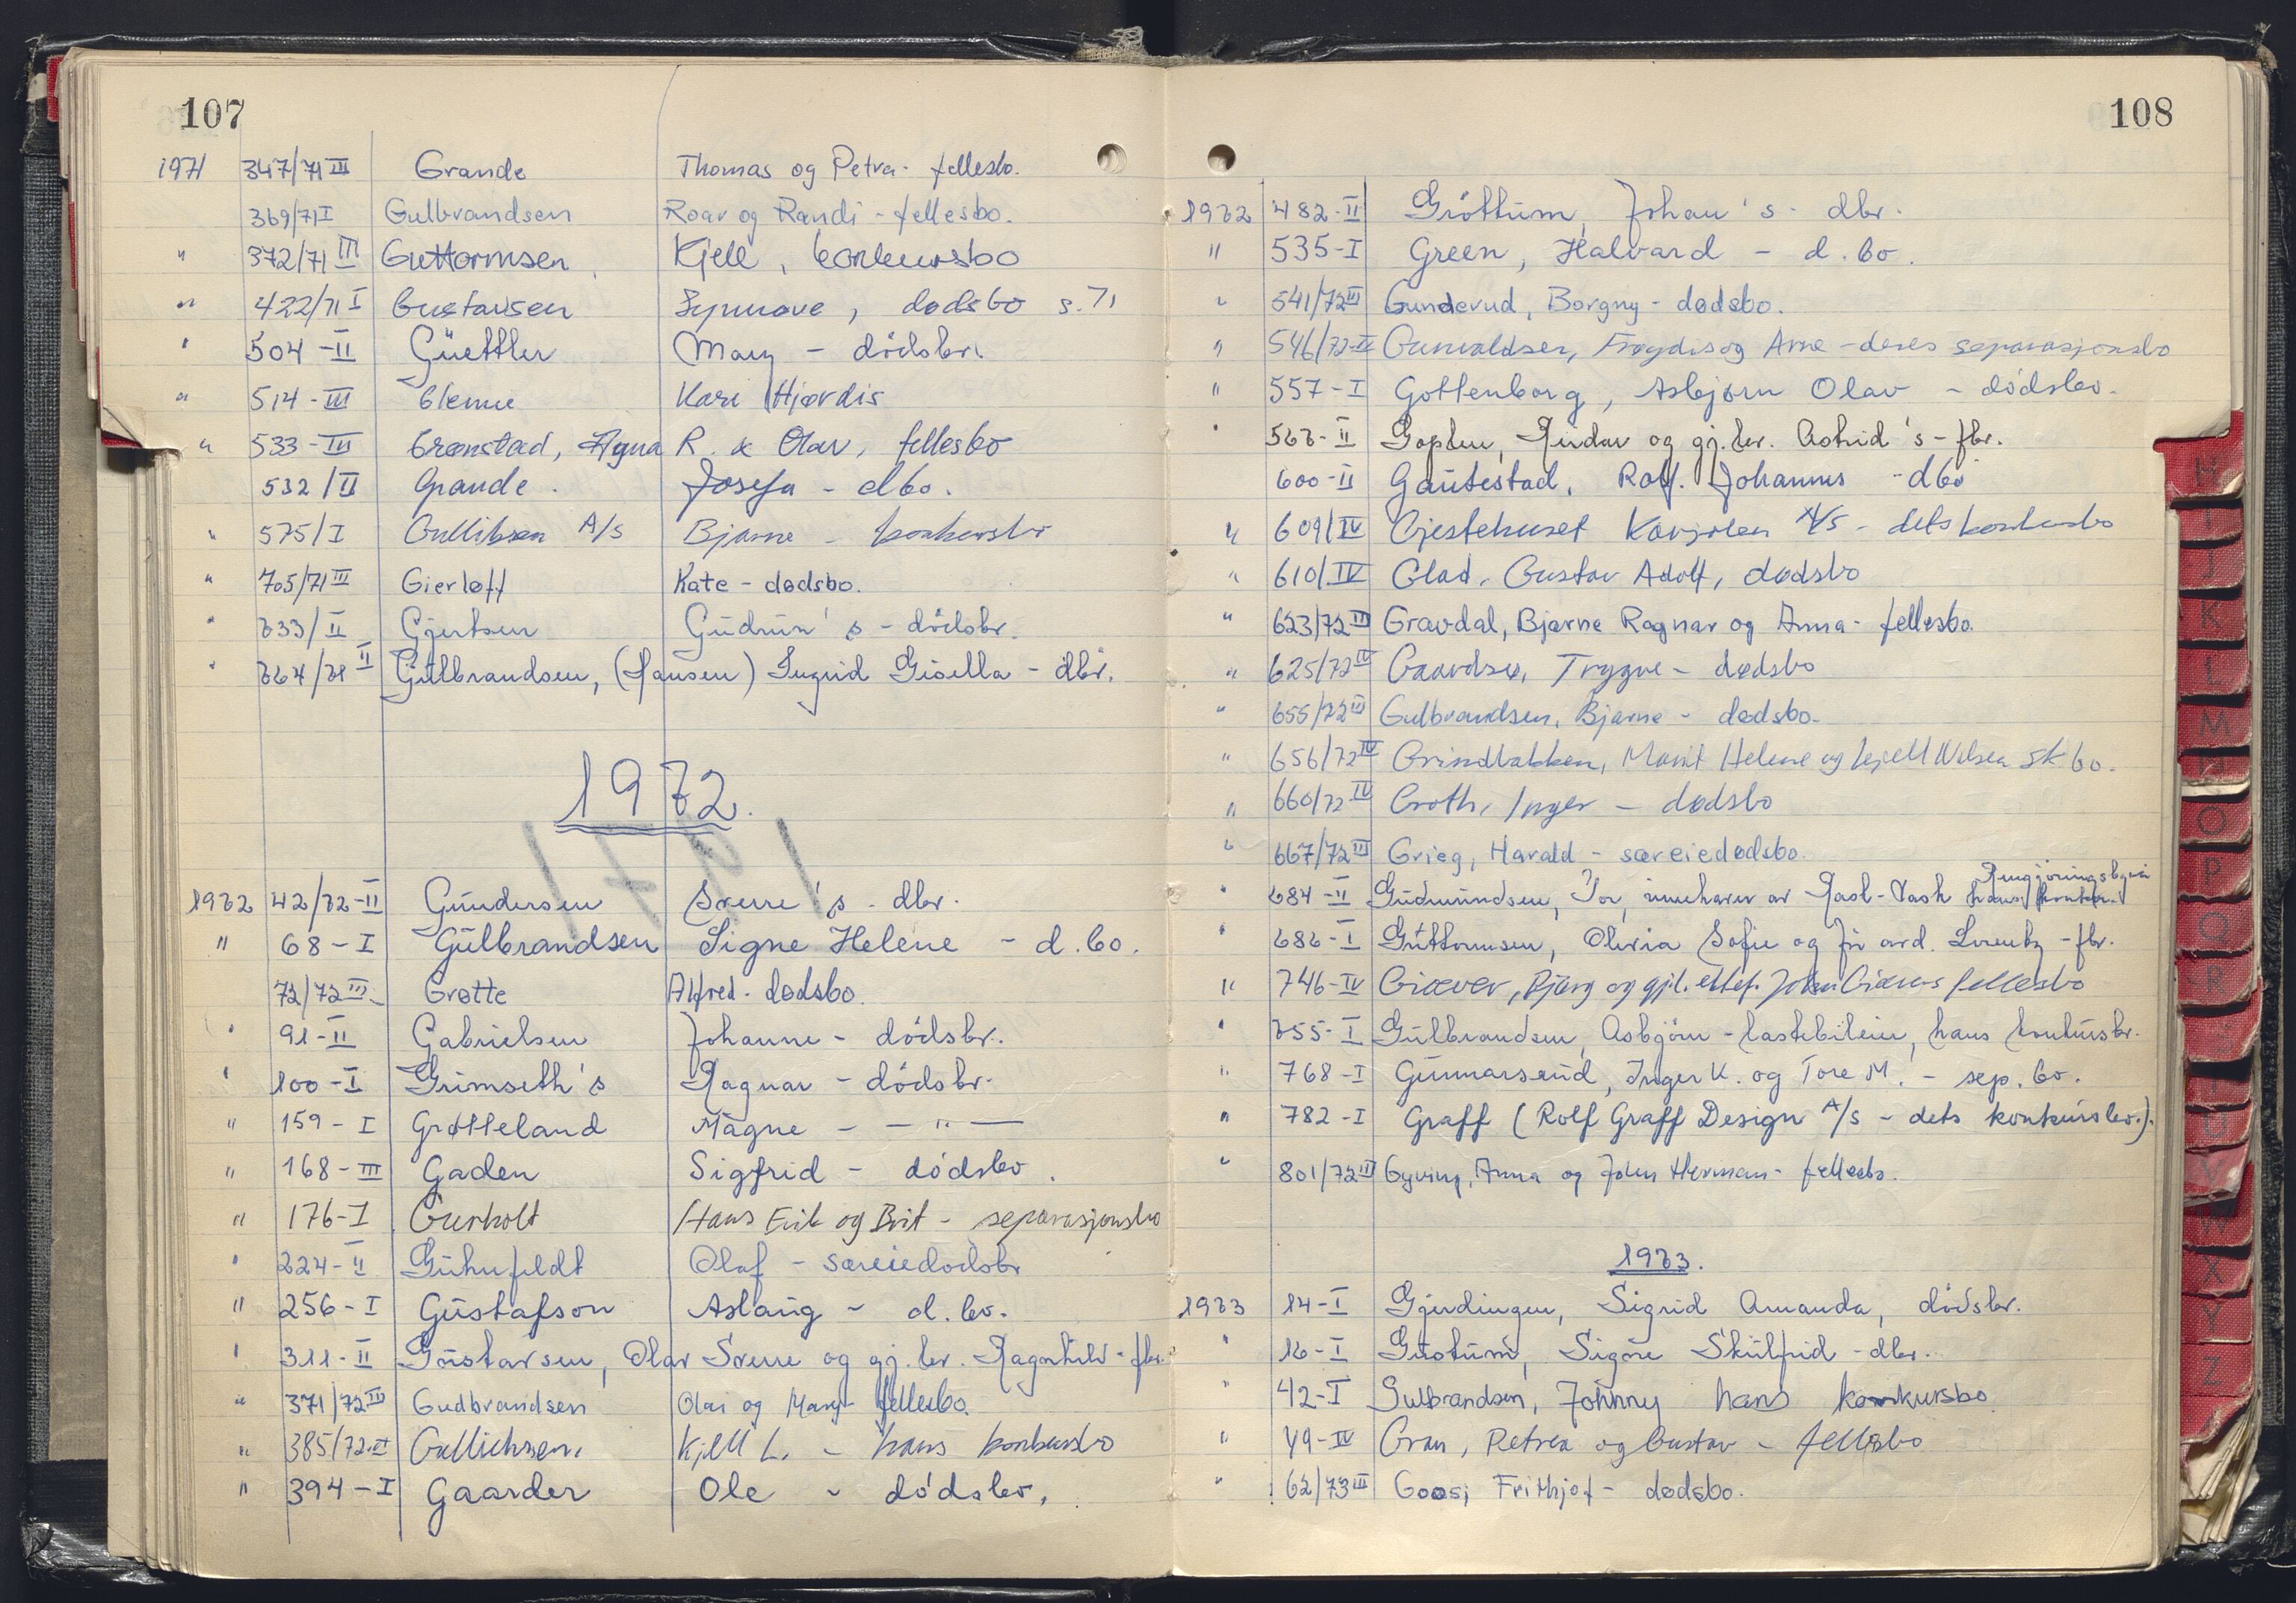 107
1971 347/71 III Grande Thomas og Petra - fellesbo.
369/71 I Gulbrandsen Roar og Randi - fellesbo.
" 372/71 III Guttormsen, Kjell, konkursbo
" 422/71 I Gustavsen Synnøve, dødsbo s. 71
" 504-II Güettler Mary - dødsbo.
" 514-III Glenne Kari Hjørdis
" 533-III Grønstad, Agna R. & Olav, fellesbo
532/II Grande. Josefa - dbo.
" 575/I Gullibsen A/S Bjarne - konkursbo
" 705/71 III Gierløff Kate - dødsbo.
" 733/II Gjertsen Gudrun's - dødsbo.
" 764/71 II Gulbrandsen, (Hansen) Ingrid Gisella - dbo.
1972.
1971
1972 42/72-II Gundersen Sverre's - dbo.
" 68-I Gulbrandsen Signe Helene - d.bo.
72/72 III - Grøtte Alfred - dødsbo.
" 91-II Gabrielsen Johanne - dødsbo.
" 100-I Grimseth's Ragnar - dødsbo.
" 159-I Grøtteland Magne - - " -
" 168-III Gaden Sigfrid - dødsbo.
" 176-I Gurholt Hans Erik og Brit - separasjonsbo
" 224-II Guhnfeldt Olaf - særeiedødsbo
" 256-I Gustafson Aslaug - d.bo.
" 311-II Gustavsen, Olav Sverre og gj.lev. Ragnhild - fbo.
" 371/72 III Gudbrandsen Olai og Mary - fellesbo.
" 385/72-II Gullichsen. Kjell L. - hans konkursbo
" 394-I Gaarder Ole - dødsbo.
108
1972 482-II Grøttum, Johan's - dbo.
" 535-I Green, Halvard - d.bo.
" 541/72 III Gunderud, Borgny - dødsbo.
" 546/72-IV Gunvaldsen, Frøydis og Arne - deres separasjonsbo
" 557-I Gottenborg, Asbjørn Olav - dødsbo.
" 567-II Goplen, Reidar og gj.lev. Astrid's - fbo.
600-II Gautestad, Rolf Johannes - dbo
" 609/IV Gjestehuset Kavringen A/S - dets konkursbo
" 610/IV Glad, Gustav Adolf, dødsbo
" 623/72 III Gravdal, Bjarne Ragnar og Anna - fellesbo.
" 625/72 IV Gaardsø, Trygve - dødsbo
" 655/72 III Gulbrandsen, Bjarne - dødsbo.
" 656/72 IV Grindbakken, Marit Helene og Kjell Nilsen sk bo.
" 660/72 IV Groth, Inger - dødsbo
" 667/72 III Grieg, Harald - særeiedødsbo.
" 684-II Gudmundsen, Tor, innehaver av Rask-Vask Rengjøringsbyrå hans konkbo.
" 687-I Guttormsen, Olivia Sofie og før avd. Lorentz - fbo.
" 746-IV Giæver, Bjørg og gjl. ektef. John Giævers fellesbo
" 755-I Gulbrandsen, Asbjørn - lastebileier, hans konkursbo.
" 768-I Gunnarsrud, Inger K. og Tore M. - sep. bo.
" 782-I Graff (Rolf Graff Design A/S - dets konkursbo.).
" 801/72 III Gyving, Anna og John Herman - fellesbo.
1973.
1973 14-I Gjerdingen, Sigrid Amanda, dødsbo.
" 16-I Gustum, Signe Skulfrid - dbo.
" 42-I Gulbrandsen, Johnny hans konkursbo
" 49-IV Gran, Petrea og Gustav - fellesbo
" 62/73 III Goos, Frithjof - dødsbo.
H
I
J
K
L
M
N
O
P
Q
R
S
T
U
V
W
X
Y
Z